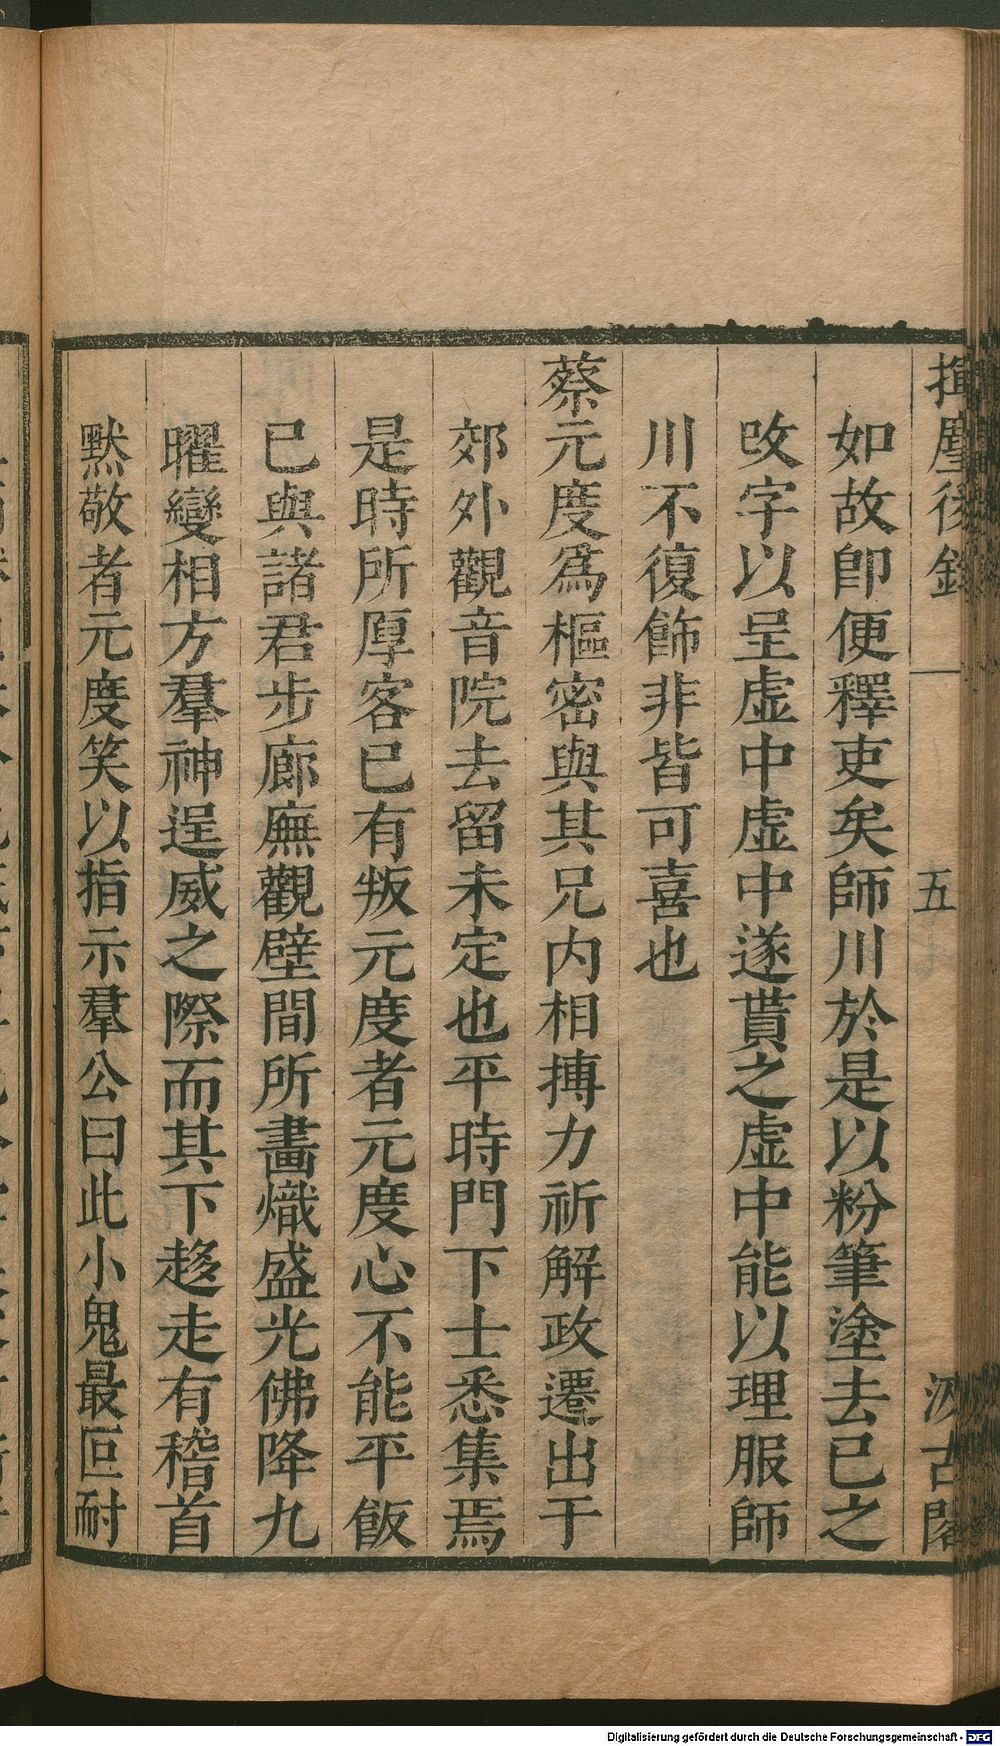 揮麈後錄 一 五 汲古閣
如故卽便釋吏矣師川於是以粉筆塗去已之
攺字以呈虛中虛中遂貰之虛中能以理服師
川不復飾非皆可喜也
蔡元度爲樞密與其兄内相搏力祈解政遷出于
郊外觀音院去留未定也平時門下士悉集焉
是時所厚客已有叛元度者元度心不能平飯
已與諸君步廊廡觀壁間所畫熾盛光佛降九
曜變相方羣神逞威之際而其下趍走有稽首
黙敬者元度笑以指示羣公曰此小鬼最叵耐
Digitalisierung gefördert durch die Deutsche Forschungsgemeinschaft - DFG